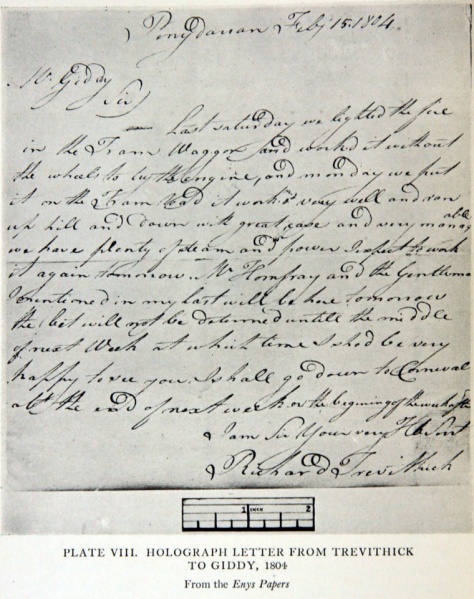 Penydarran Feby 15. 1804.
Mr Giddy
Sir
Last saturday we lighted the fire
in the Tram Waggon and work'd it without
the wheels to try the engine, and monday we put
it on the Tram Road it work'd very well and ran
up hill and down with great ease and very managable
we have plenty of steam and power I expect to work
it again tomorrow. Mr Homfray and the Gentleman
I mentioned in my last will be here tomorrow
the bet will not be determ'd untill the middle
of next Week at which time I shod be very
happy to see you. I shall go down to Cornwall
abt the end of next week or the begining of the week after
I am Sir Your very Hble Sert
Richard Trevithick
1 INCH 2
PLATE VIII. HOLOGRAPH LETTER FROM TREVITHICK
TO GIDDY, 1804
From the Enys Papers